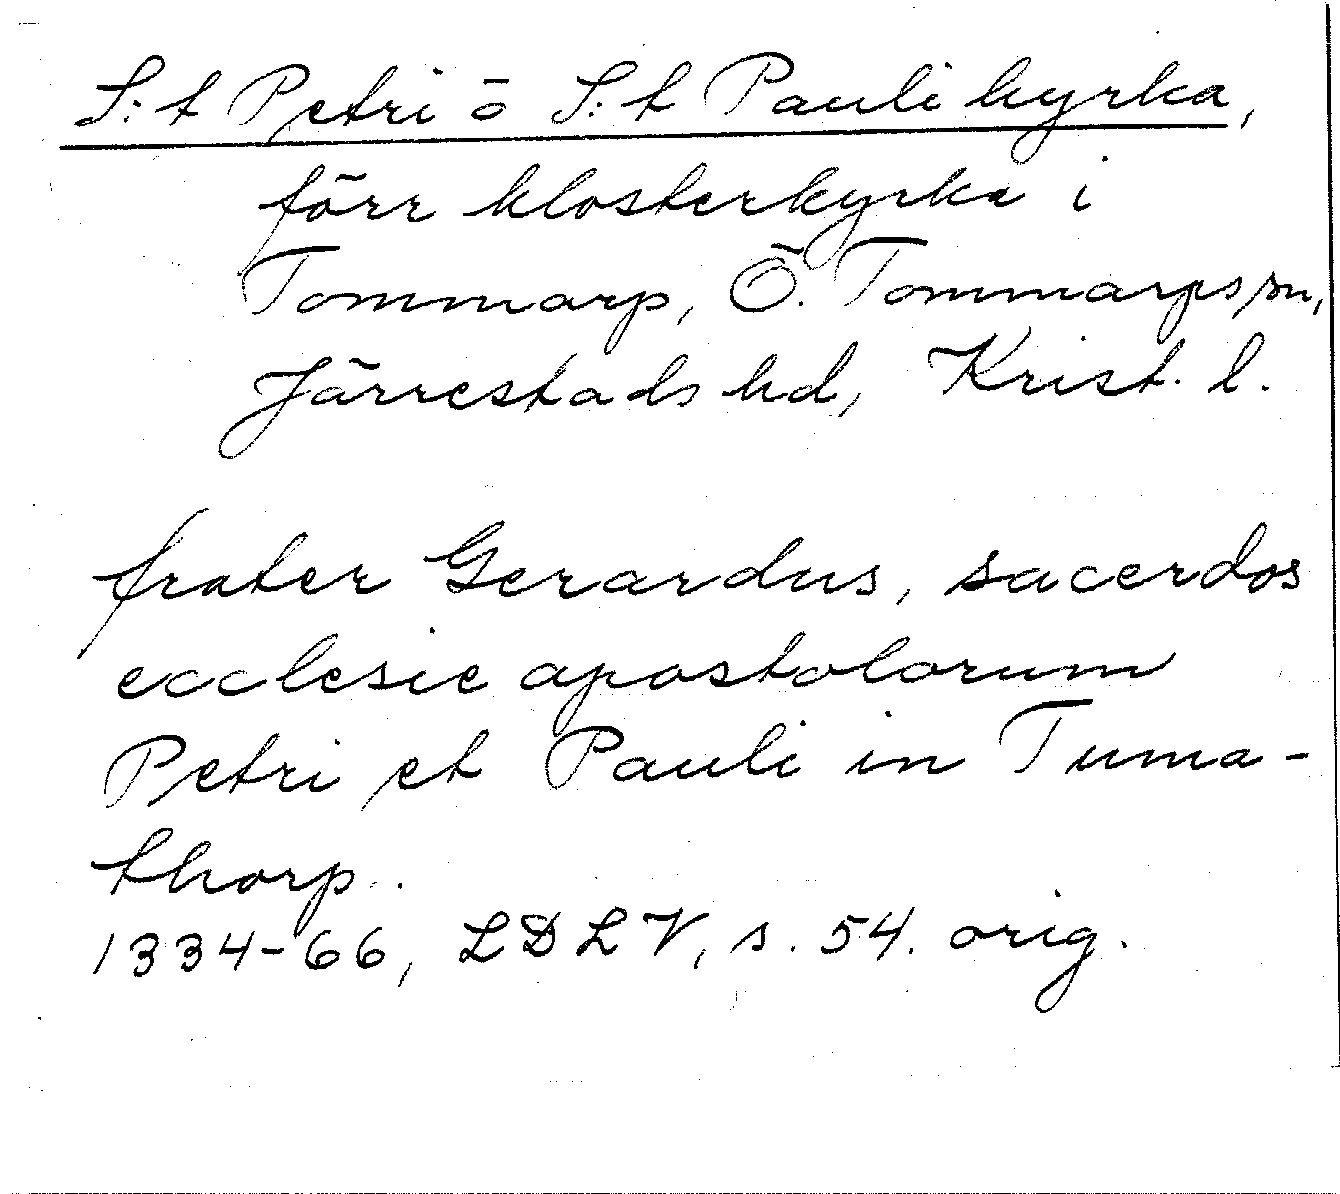 S:t Petri o S:t Pauli kyrka,
förr klosterkyrka i
Tommarp, Ö. Tommarps sn,
Järrestads hd, Krist. l.
frater Gerardus, sacerdos
ecclesie apostolorum
Petri et Pauli in Tuma-
thorp.
1334-66, LDLV, s. 54. orig.